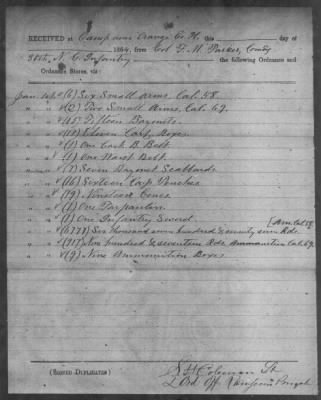 RECEIVED AT Camp near Orange C. H. this day of
1864, from Col F. M. Parker, Comdg
30th N. C. Infantry the following Ordnance and
Ordnance Stores, viz:
(6) Six Small Arms Cal. 58
" " (2) Two Small Arms, Cal. 69
" " (15) Fifteen Bayonets
" " (11) Eleven Cart. Boxes
" " (1) One Cart. B. Belt
" " (1) One Waist Belt
" " (7) Seven Bayonet Scabbards
" " (16) Sixteen Cap Pouches
" " (19) Nineteen Cones
" " (1) One Tarpaulin
" " (1) One Infantry Sword
" " (6777) Six thousand seven hundred & seventy seven Rds. Am. Cal. 58
" " (917) Nine hundred & seventeen Rds. Ammunition Cal. 69
" " (9) Nine Ammunition Boxes
(SIGNED DUPLICATES)
Coleman Lt
Ord Off